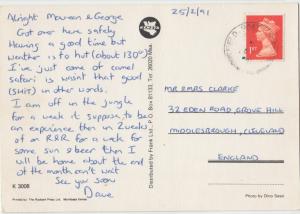 25/2/91
Alright Maureen & George
Got over here safely
Having a good time but
weather is to hot (about 130°)
I've just come of camel
safari is wasnt that good
(SHIT) in other words.
I am off in the jungle
for a week it suppose to be
an experience, then in 2 weeks
of an R&R for a week for
some sun & beer then I
will be home about the end
of the month cant wait
See you soon
Dave
K 3008
Printed by The Rodwell Press Ltd. Mombasa Kenya
Distributed by Frank Ltd., P.O. Box 81133, Tel: 26020 Msa.
1ST
MR & MRS CLARKE
32 EDEN ROAD, GROVE HILL
MIDDLESBROUGH, CLEVELAND
ENGLAND
Photo by Dino Sassi